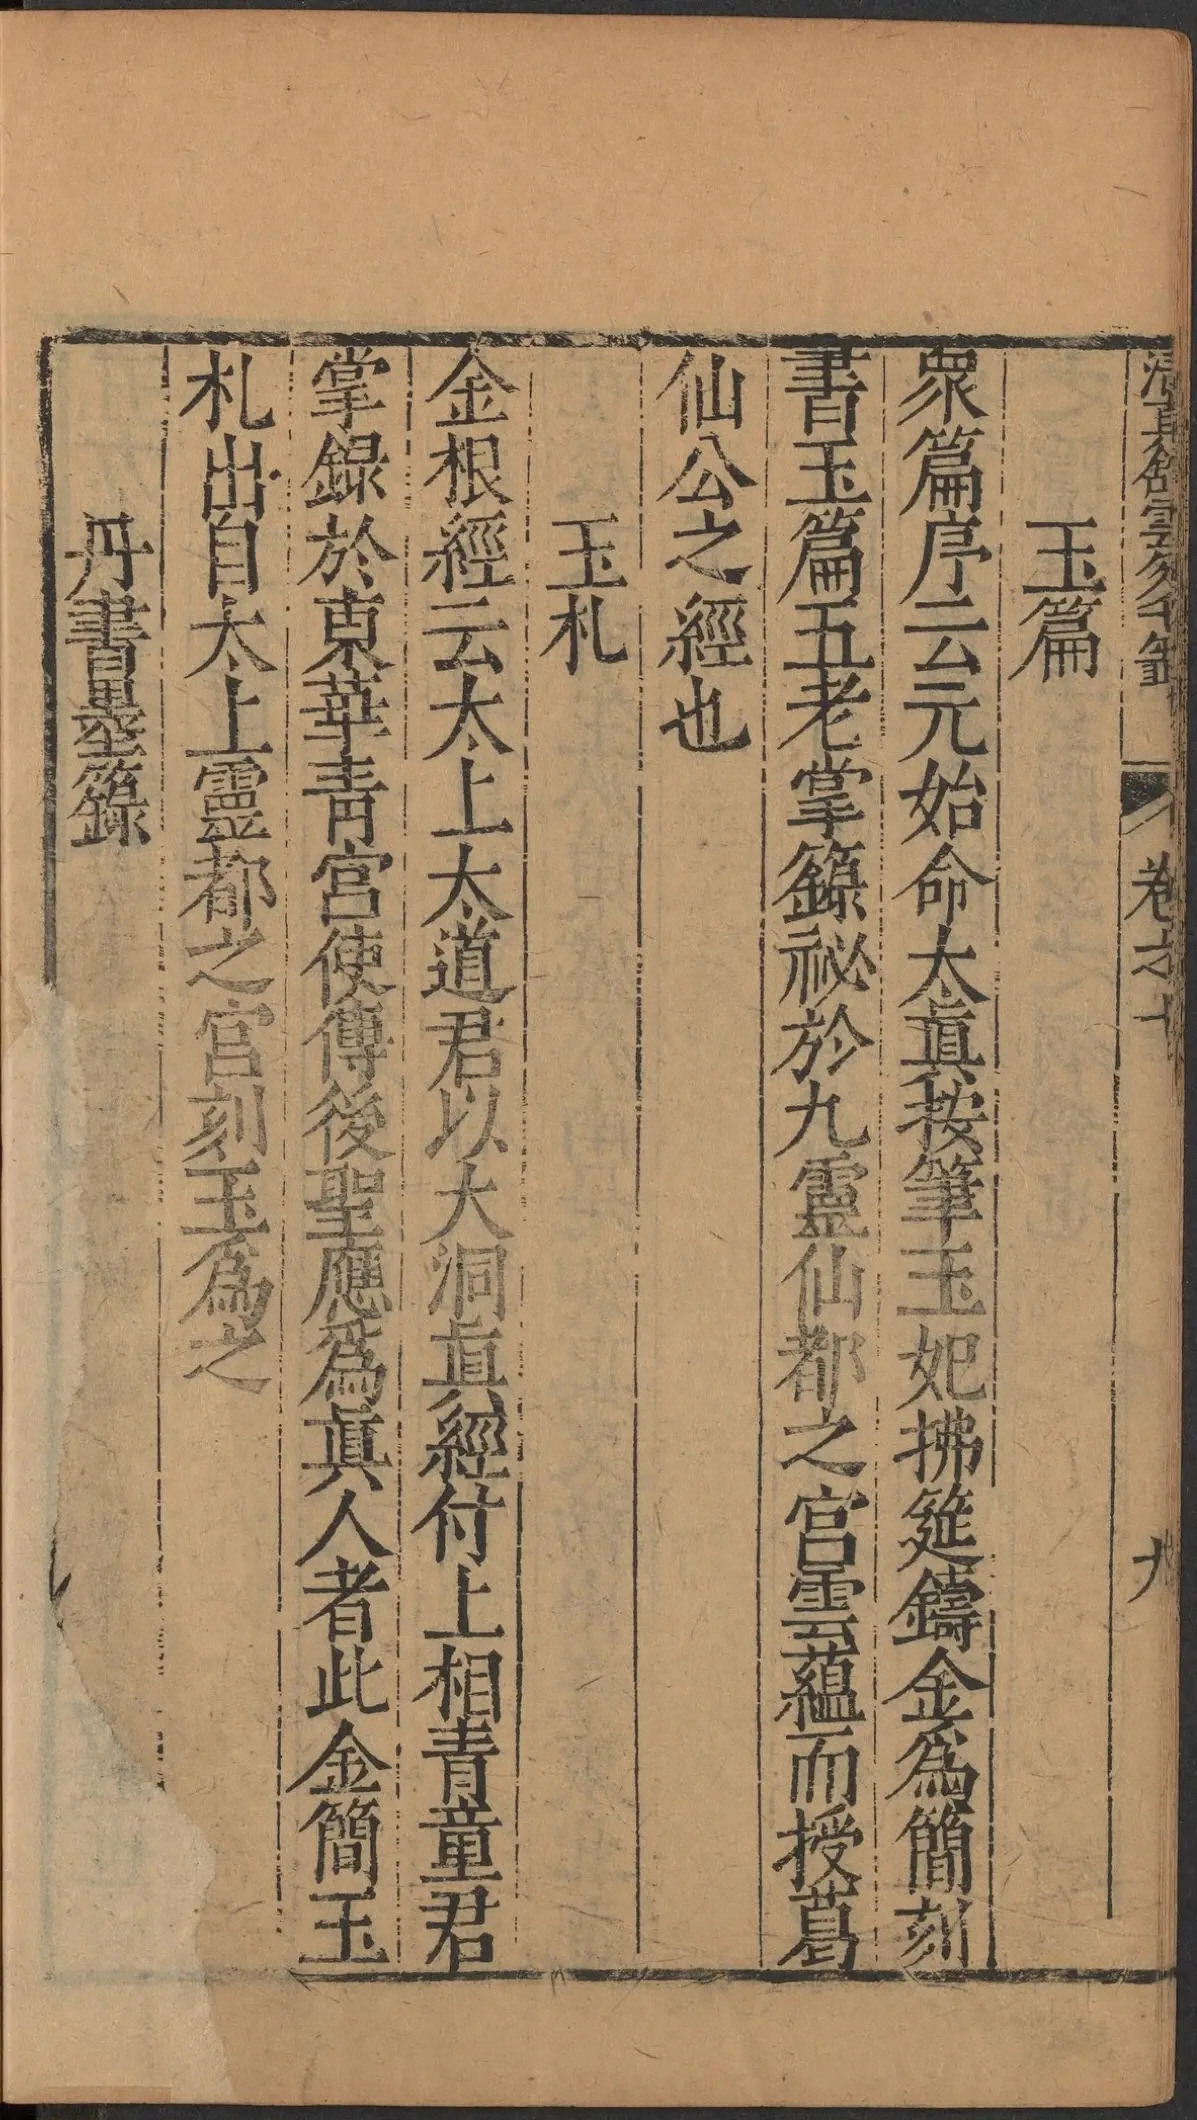 清真館雲笈七籤 卷之七 九
玉篇
衆篇序云元始命太眞按筆玉妃拂筵鑄金爲簡刻
書玉篇五老掌籙祕於九靈仙都之宮雲蘊而授葛
仙公之經也
玉札
金根經云太上太道君以大洞眞經付上相青童君
掌錄於東華青宮使傳後聖應爲眞人者此金簡玉
札出自太上靈都之宮刻玉爲之
丹書墨籙